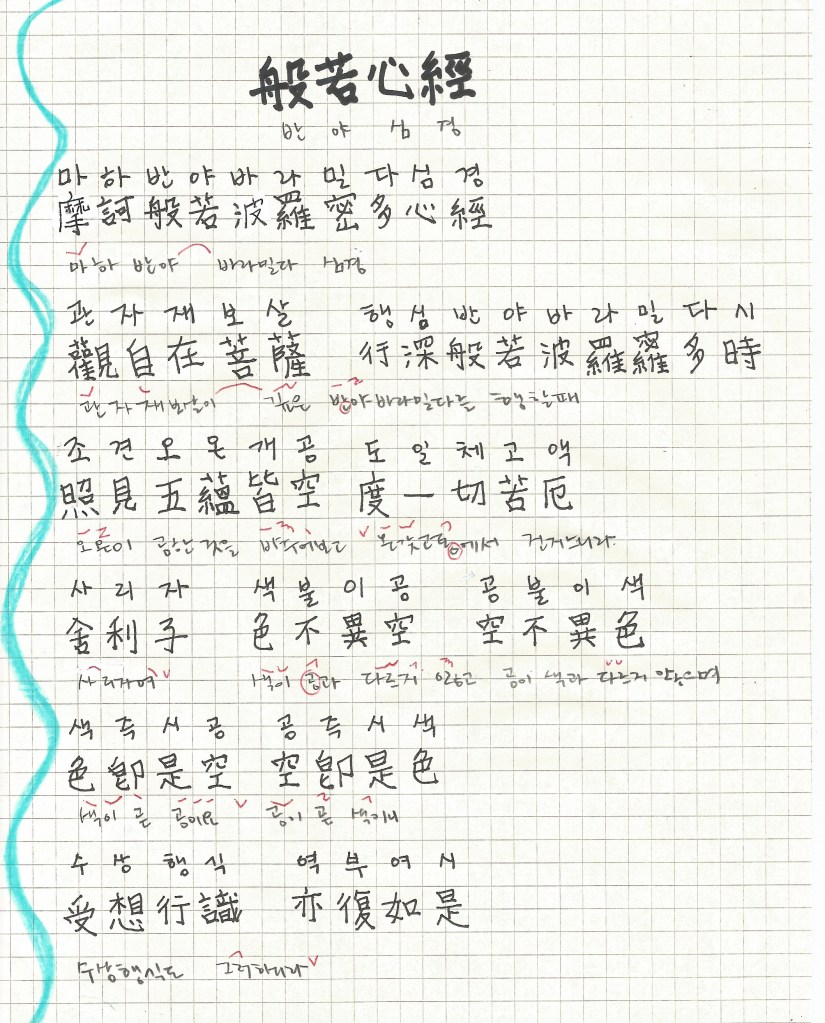 般若心經
반야심경
마하반야바라밀다심경
摩訶般若波羅密多心經
마하 반야 바라밀다 심경
관자재보살 행심반야바라밀다시
觀自在菩薩 行深般若波羅蘿多時
관자재보살이 깊은 반야바라밀다를 행할때
조견오온개공 도일체고액
照見五蘊皆空 度一切苦厄
오온이 공한것을 비추어보고 온갖고통에서 건지느니라
사리자 색불이공 공불이색
舍利子 色不異空 空不異色
사리자여 색이 공과 다르지 않고 공이 색과 다르지 않으며
색즉시공 공즉시색
色卽是空 空卽是色
색이 곧 공이요 공이 곧 색이니
수상행식 역부여시
受想行識 亦復如是
수상행식도 그러하니라